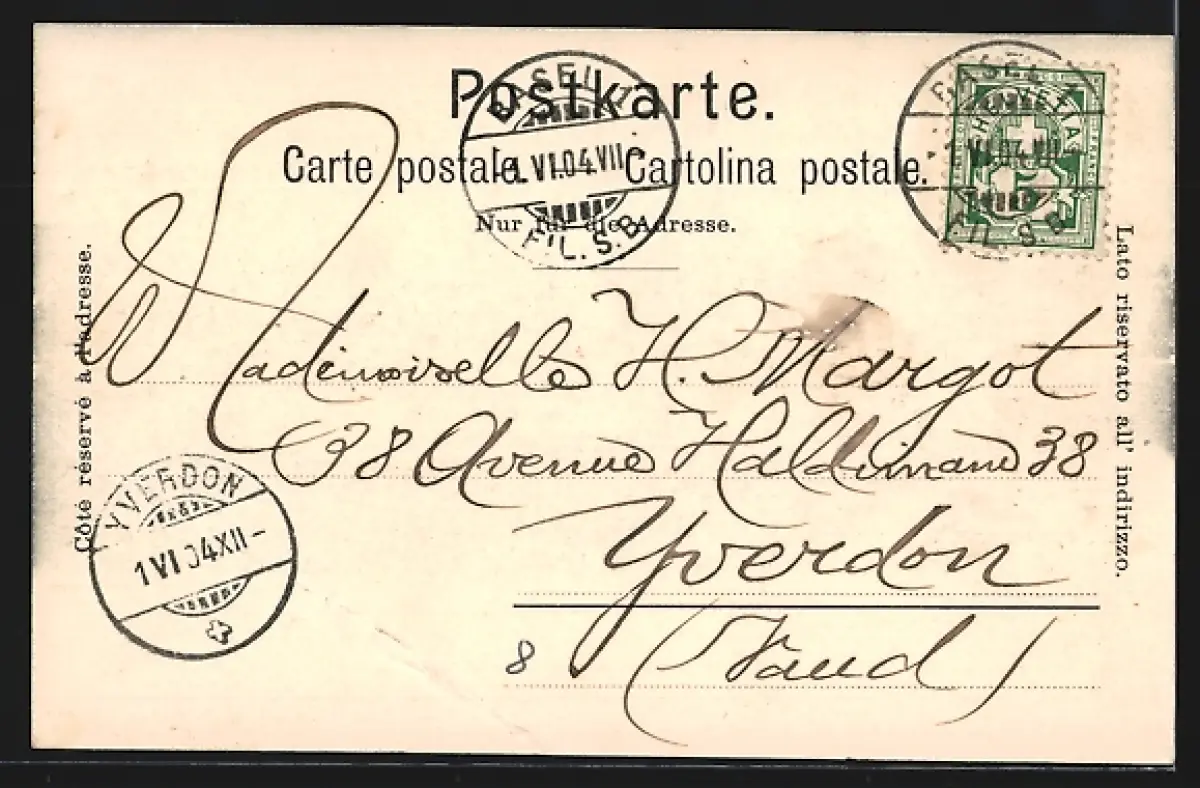 Postkarte.
Carte postale. Cartolina postale.
Nur für die Adresse.
BASEL 1
-1.VI.04.VII-
FIL. S. B.
BASEL 1
-1.VI.04.VII-
FIL. S. B.
HELVETIA
5
Côté réservé à l'adresse.
Lato riservato all' indirizzo.
Mademoiselle H. Margot
38 Avenue Haldimand 38
Yverdon
(Vaud)
YVERDON
1 VI 04 XII -
8